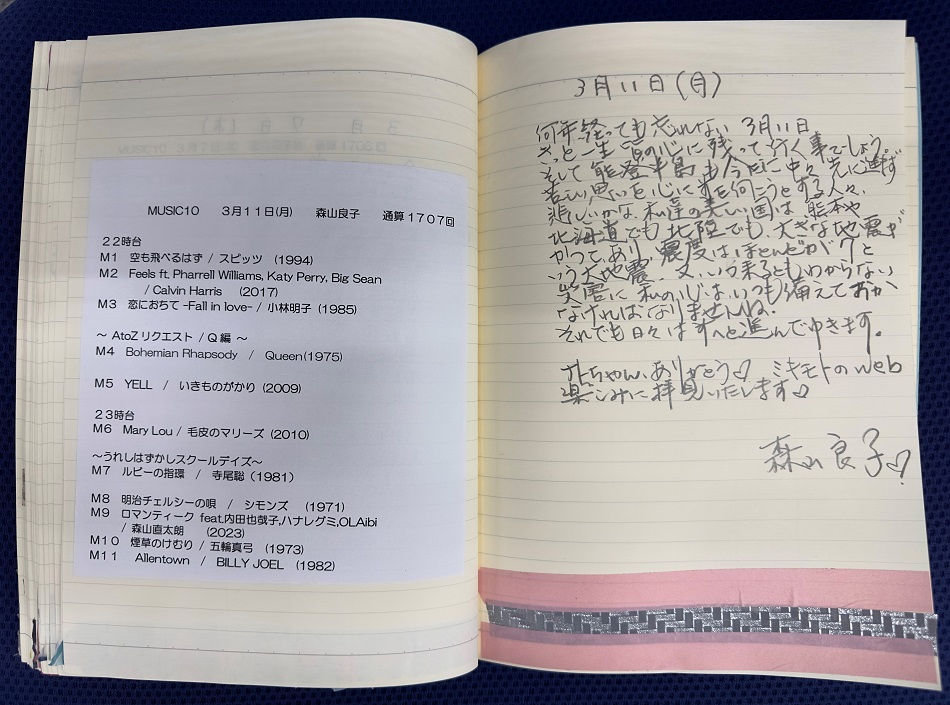 MUSIC10 3月11日(月) 森山良子 通算1707回
22時台
M1 空も飛べるはず / スピッツ (1994)
M2 Feels ft. Pharrell Williams, Katy Perry, Big Sean
/ Calvin Harris (2017)
M3 恋におちて -Fall in love- / 小林明子 (1985)
～ AtoZリクエスト / Q編 ～
M4 Bohemian Rhapsody / Queen(1975)
M5 YELL / いきものがかり (2009)
23時台
M6 Mary Lou / 毛皮のマリーズ (2010)
～うれしはずかしスクールデイズ～
M7 ルビーの指環 / 寺尾聡 (1981)
M8 明治チェルシーの唄 / シモンズ (1971)
M9 ロマンティーク feat.内田也哉子,ハナレグミ,OLAibi
/ 森山直太朗 (2023)
M10 煙草のけむり / 五輪真弓 (1973)
M11 Allentown / BILLY JOEL (1982)
3月11日(月)
何年経っても忘れない 3月11日
きっと一生 皆の心に残って行く事でしょう。
そして 能登半島も今だに中々 先に進ず
苦しい思いを心に 前を向こうとする人々.
悲しいかな、私達の美しい国は 熊本や
北海道でも、北陸でも、大きな地震が
かつて、あり 震度はほとんどが 7と
いう大地震. 又、いつ来るともわからない
災害に 私の心は、いつも備えておか
なければなりませんね.
それでも日々は すへと進んでゆきます。
ちゃん、ありがとう♡ ミキモトのweb
楽しみに拝見いたします♡
森山良子♡